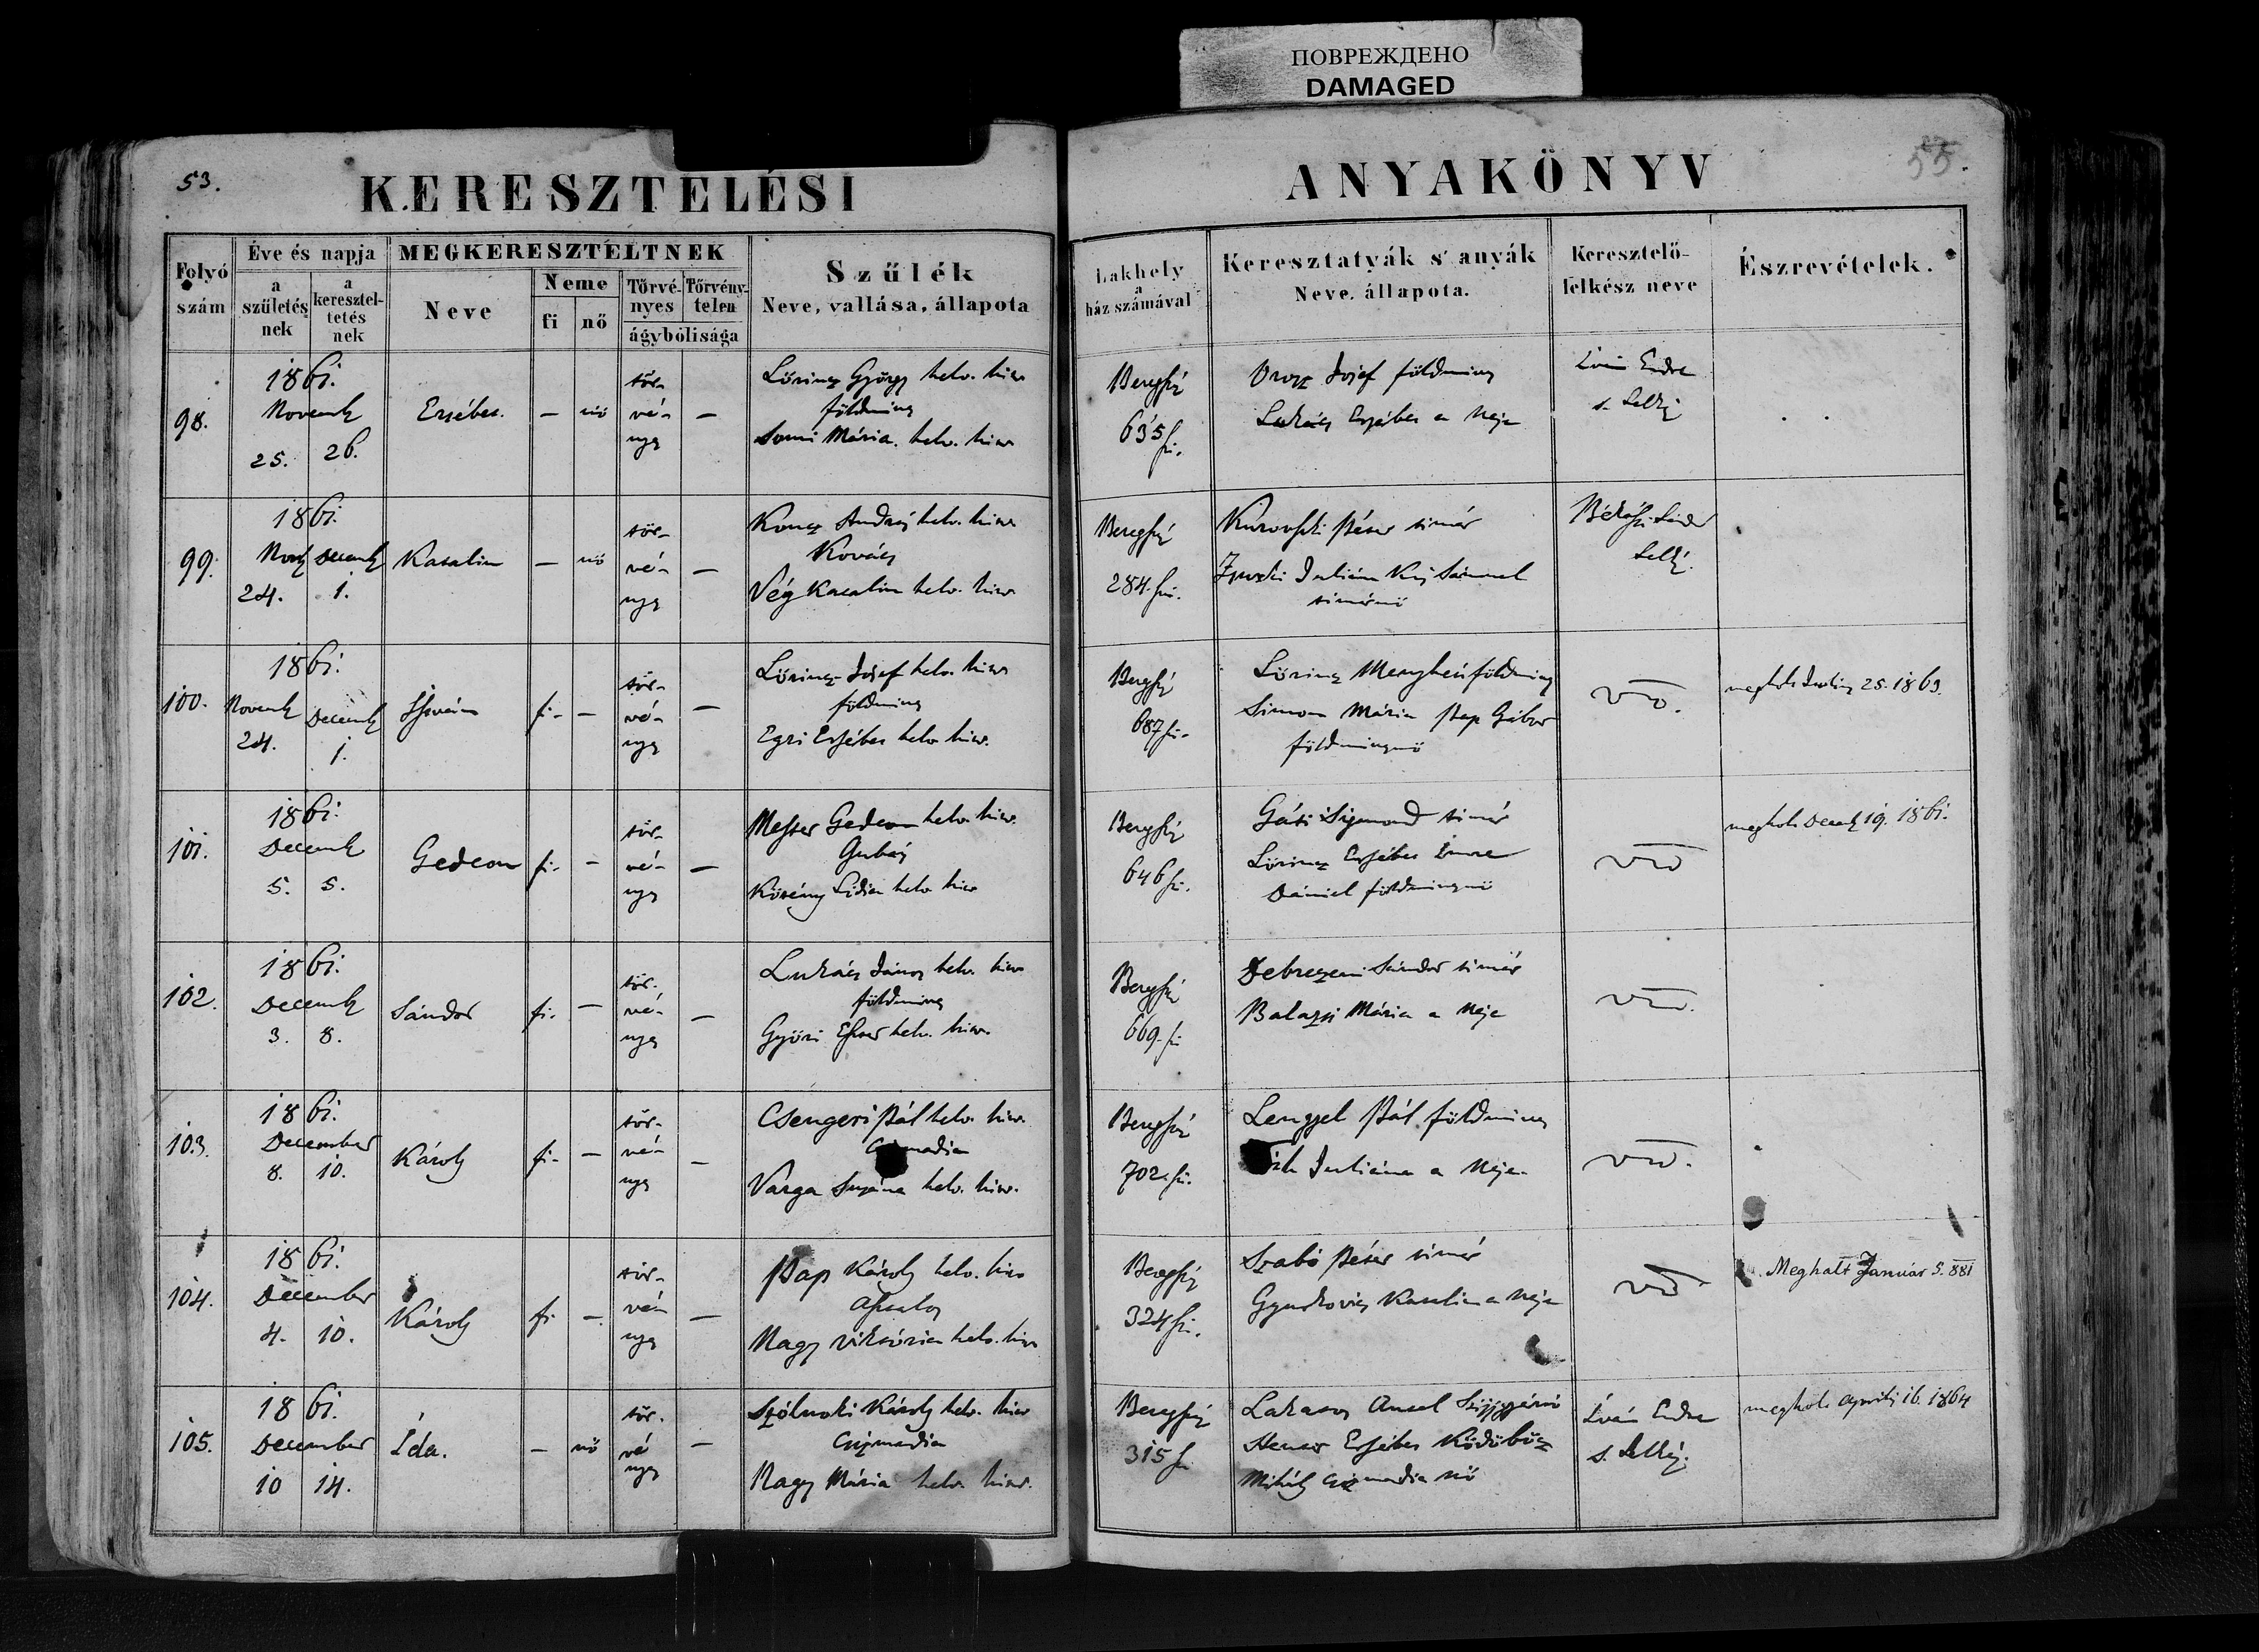 ПОВРЕЖДЕНО
DAMAGED
53.
KERESZTELÉSI
ANYAKÖNYV
55.
Folyó szám
Éve és napja
a születésnek
a kereszteltetésnek
MEGKERESZTELTNEK
Neve
Neme
fi
nő
Törvényes
Törvénytelen
ágybólisága
Szűlék
Neve, vallása, állapota
Lakhely
a
ház számával
Keresztatyák s' anyák
Neve, állapota.
Keresztelő-
lelkész neve
Észrevételek.
98.
1861.
Novemb
25. 26.
Ersébet.
— nő
tör-
vé-
nyes
—
Lőrincz György helv. hitv.
földműves
Somi Mária. helv. hitv.
Beregszáz
635 sz.
Orosz Josef földműves
Lukács Ersébet a Neje
Iván Endre
s. Lelkész
99.
1861.
Novb Decemb
24. 1.
Katalin
— nő
tör-
vé-
nyes
—
Koncz András helv. hitv.
Kovács
Vég Katalin helv. hitv.
Beregszáz
284. sz.
Péter timár
Juliána Kis Sámuel
timárnő
Lelkész
100.
1861.
Novemb Decemb
24. 1.
István
fi- —
tör-
vé-
nyes
—
Lőrincz Josef helv. hitv.
földműves
Egri Ersébet helv. hitv.
Beregszáz
687 sz.
Lőrincz Menyhért földműves
Simon Mária Pap Gábor
földművesnő
meghalt 25. 1863.
101.
1861.
Decemb
5. 5.
Gedeon
fi- —
tör-
vé-
nyes
—
Gedeon helv. hitv.
Gubás
Lídia helv. hitv.
Beregszáz
646 sz.
Gáti Sigmond timár
Lőrincz Ersébet Imre
Dániel földművesnő
meghalt Decemb 19. 1861.
102.
1861.
Decemb
3. 8.
Sándor
fi- —
tör-
vé-
nyes
—
Lukács János helv. hitv.
földműves
Győri Eszter helv. hitv.
Beregszáz
669. sz.
Debreczeni Sándor timár
Balazsi Mária a Neje
103.
1861.
December
8. 10.
Károly
fi- —
tör-
vé-
nyes
—
Csengeri Pál helv. hitv.
Varga Susána helv. hitv.
Beregszáz
702. sz.
Lengyel Pál földműves
Juliána a Neje.
104.
1861.
December
4. 10.
Károly
fi —
tör-
vé-
nyes
—
Pap Károly helv. hitv.
Asztalos
Nagy Viktória helv. hitv.
Beregszáz
324 sz.
Szabó Péter timár
Katalin a Neje
Meghalt Január 5. 881
105.
1861.
December
10 14.
Ida.
— nő
tör-
vé
nyes
—
Szólnoki Károly helv. hitv.
Csizmadia
Nagy Mária helv. hitv.
Beregszáz
315 sz.
Lakatos Antal
Ersébet
Mihály csizmadia nő
Iván Endre
s. Lelkész.
meghalt április 16. 1864